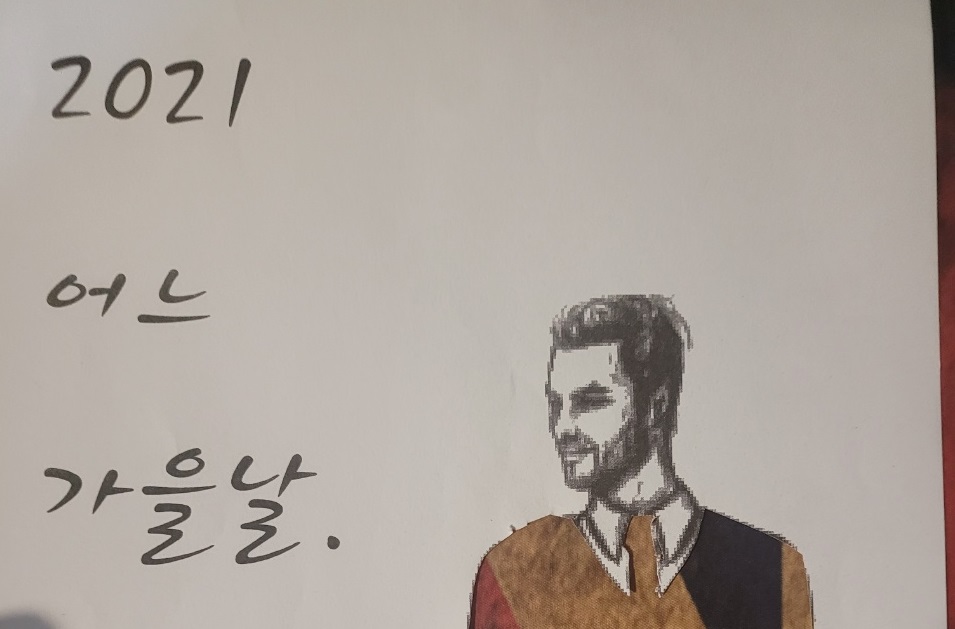 2021
어느
가을날.